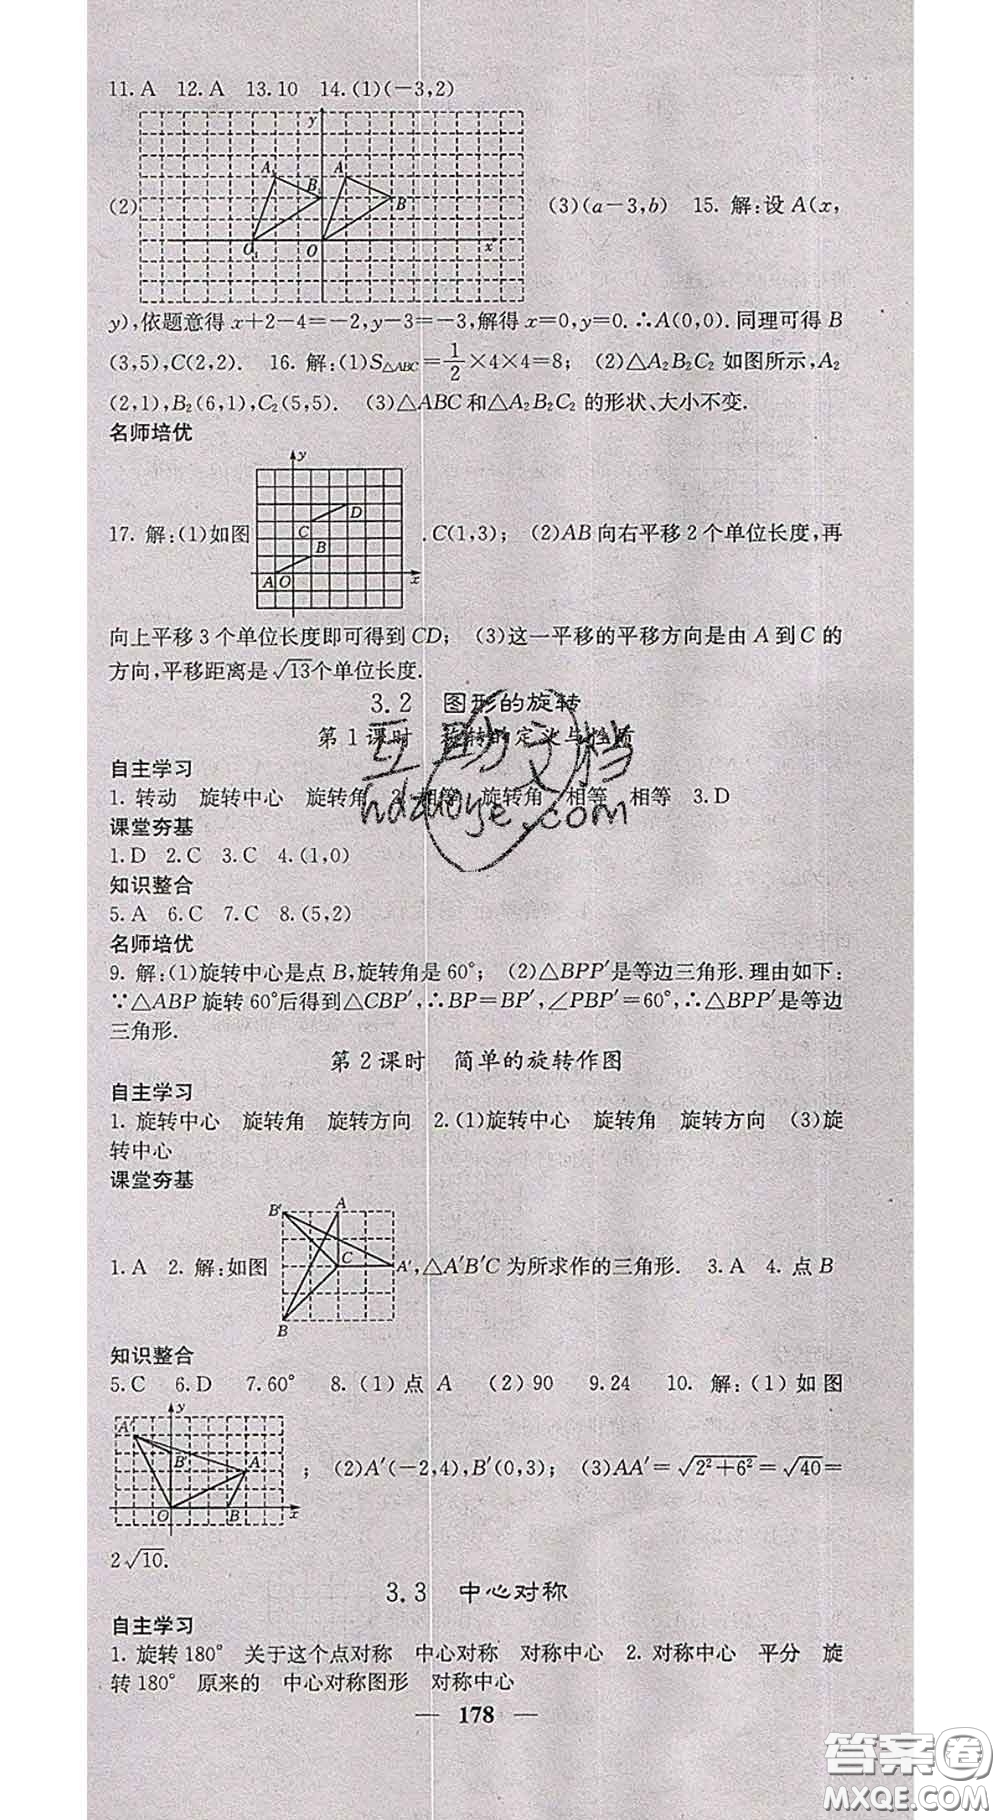 11. A 12. A 13. 10 14. (1)(-3,2)
(2)
y
A₁
A
B₁
B
O₁
O
x
(3)(a-3,b) 15. 解:设 A(x,
y),依题意得 x+2-4=-2,y-3=-3,解得 x=0,y=0.∴A(0,0).同理可得 B
(3,5),C(2,2). 16. 解:(1)S△ABC=1/2×4×4=8; (2)△A₂B₂C₂ 如图所示,A₂
(2,1),B₂(6,1),C₂(5,5). (3)△ABC 和△A₂B₂C₂ 的形状、大小不变.
名师培优
y
D
C
B
A O
x
17. 解:(1)如图 .C(1,3); (2)AB 向右平移 2 个单位长度,再
向上平移 3 个单位长度即可得到 CD; (3)这一平移的平移方向是由 A 到 C 的
方向,平移距离是√13个单位长度.
3.2 图形的旋转
第 1 课时 旋转的定义与性质
自主学习
1. 转动 旋转中心 旋转角 2. 相等 旋转角 相等 相等 3. D
课堂夯基
1. D 2. C 3. C 4. (1,0)
知识整合
5. A 6. C 7. C 8. (5,2)
名师培优
9. 解:(1)旋转中心是点 B,旋转角是 60°; (2)△BPP′是等边三角形.理由如下:
∵△ABP 旋转 60°后得到△CBP′,∴BP=BP′,∠PBP′=60°,∴△BPP′是等边
三角形.
第 2 课时 简单的旋转作图
自主学习
1. 旋转中心 旋转角 旋转方向 2. (1)旋转中心 旋转角 旋转方向 (3)旋
转中心
课堂夯基
B′
A
C
B
1. A 2. 解:如图 A′,△A′B′C 为所求作的三角形. 3. A 4. 点 B
知识整合
5. C 6. D 7. 60° 8. (1)点 A (2)90 9. 24 10. 解:(1)如图
y
A′
B′
A
O
B
x
; (2)A′(-2,4),B′(0,3); (3)AA′=√(2²+6²)=√40=
2√10.
3.3 中心对称
自主学习
1. 旋转 180° 关于这个点对称 中心对称 对称中心 2. 对称中心 平分 旋
转 180° 原来的 中心对称图形 对称中心
— 178 —
互助文档
hdzuoye.com
答案圈
MXQE.COM